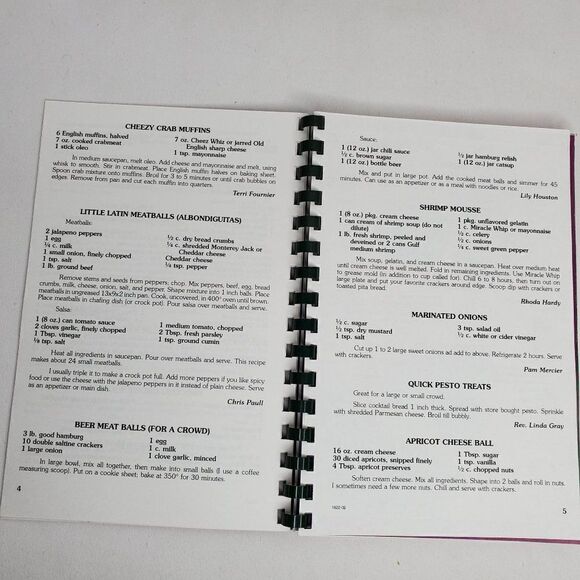 CHEEZY CRAB MUFFINS
6 English muffins, halved
7 oz. cooked crabmeat
1 stick oleo
7 oz. Cheez Whiz or jarred Old
English sharp cheese
1 tsp. mayonnaise
In medium saucepan, melt oleo. Add cheese and mayonnaise and melt, using
whisk to smooth. Stir in crabmeat. Place English muffin halves on baking sheet.
Spoon crab mixture onto muffins. Broil for 3 to 5 minutes or until crab bubbles on
edges. Remove from pan and cut each muffin into quarters.
Terri Fournier
LITTLE LATIN MEATBALLS (ALBONDIGUITAS)
Meatballs:
2 jalapeno peppers
1 egg
¼ c. milk
1 small onion, finely chopped
1 tsp. salt
1 lb. ground beef
½ c. dry bread crumbs
¼ c. shredded Monterey Jack or
Cheddar cheese
Cheddar cheese
⅛ tsp. pepper
Remove stems and seeds from peppers; chop. Mix peppers, beef, egg, bread
crumbs, milk, cheese, onion, salt, and pepper. Shape mixture into 1 inch balls. Place
meatballs in ungreased 13x9x2 inch pan. Cook, uncovered, in 400° oven until brown.
Place meatballs in chafing dish (or crock pot). Pour salsa over meatballs and serve.
Salsa:
1 (8 oz.) can tomato sauce
2 cloves garlic, finely chopped
1 Tbsp. vinegar
⅛ tsp. salt
1 medium tomato, chopped
2 Tbsp. fresh parsley
1 tsp. ground cumin
Heat all ingredients in saucepan. Pour over meatballs and serve. This recipe
makes about 24 small meatballs.
I usually triple it to make a crock pot full. Add more peppers if you like spicy
food or use the cheese with the jalapeno peppers in it instead of plain cheese. Serve
as an appetizer or main dish.
Chris Paull
BEER MEAT BALLS (FOR A CROWD)
3 lb. good hamburg
10 double saltine crackers
1 large onion
1 egg
1 c. milk
1 clove garlic, minced
In large bowl, mix all together, then make into small balls (I use a coffee
measuring scoop). Put on a cookie sheet; bake at 350° for 30 minutes.
4
Sauce:
1 (12 oz.) jar chili sauce
½ c. brown sugar
1 (12 oz.) bottle beer
½ jar hamburg relish
1 (12 oz.) jar catsup
Mix and put in large pot. Add the cooked meat balls and simmer for 45
minutes. Can use as an appetizer or as a meal with noodles or rice.
Lily Houston
SHRIMP MOUSSE
1 (8 oz.) pkg. cream cheese
1 can cream of shrimp soup (do not
dilute)
1 lb. fresh shrimp, peeled and
deveined or 2 cans Gulf
medium shrimp
1 pkg. unflavored gelatin
1 c. Miracle Whip or mayonnaise
½ c. celery
½ c. onions
¼ c. sweet green pepper
Mix soup, gelatin, and cream cheese in a saucepan. Heat over medium heat
until cream cheese is well melted. Fold in remaining ingredients. Use Miracle Whip
to grease mold (in addition to cup called for). Chill 6 to 8 hours, then turn out on
large plate and put your favorite crackers around edge. Scoop dip with crackers or
toasted pita bread.
Rhoda Hardy
MARINATED ONIONS
½ c. sugar
½ tsp. dry mustard
1 tsp. salt
3 tsp. salad oil
½ c. white or cider vinegar
Cut up 1 to 2 large sweet onions ad add to above. Refrigerate 2 hours. Serve
with crackers.
Pam Mercier
QUICK PESTO TREATS
Great for a large or small crowd.
Slice cocktail bread 1 inch thick. Spread with store bought pesto. Sprinkle
with shredded Parmesan cheese. Broil till bubbly.
Rev. Linda Gray
APRICOT CHEESE BALL
16 oz. cream cheese
30 diced apricots, snipped finely
4 Tbsp. apricot preserves
1 Tbsp. sugar
1 tsp. vanilla
½ c. chopped nuts
Soften cream cheese. Mix all ingredients. Shape into 2 balls and roll in nuts.
I sometimes need a few more nuts. Chill and serve with crackers.
5